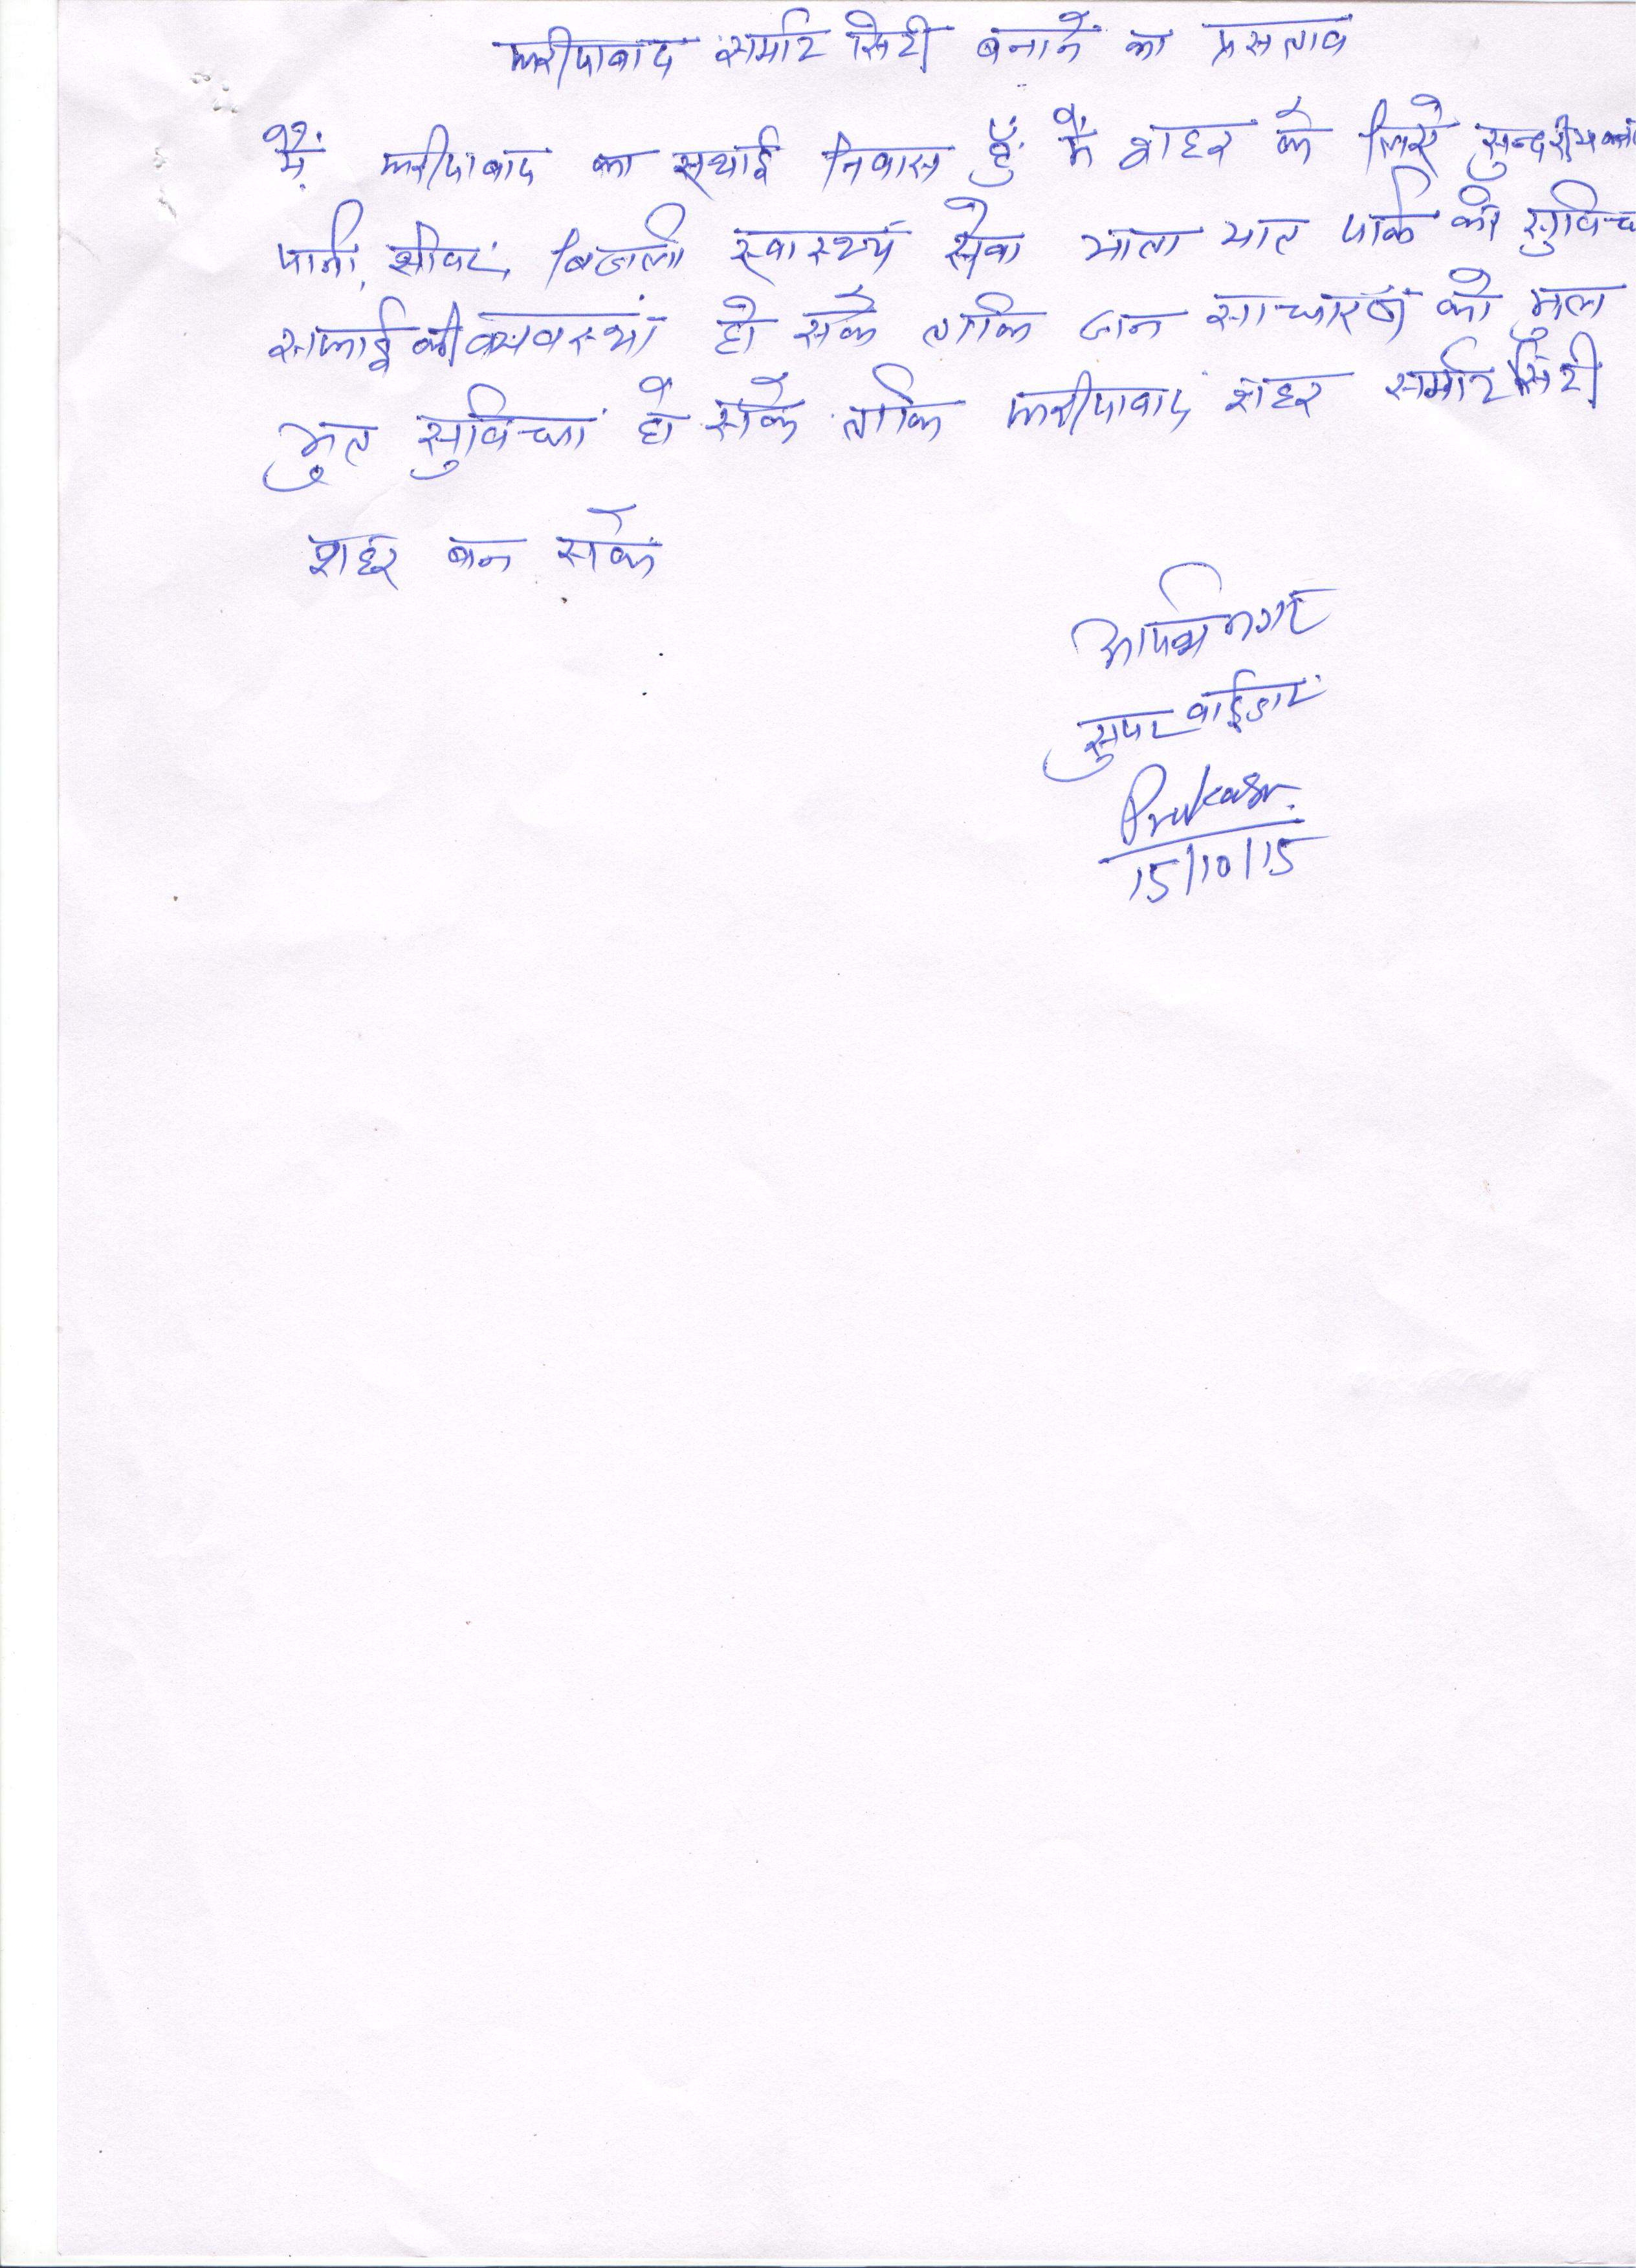 फरीदाबाद समार्ट सिटी बनाने का प्रसताव
मैं फरीदाबाद का स्थाई निवास हुँ मैं शहर के लिऐ
पानी, सीवर, बिजली स्वास्थ्य सेवा याता यात पार्क की
सफाई की व्यवस्था हो सके ताकि जन साधारण को मुल
भुत सुविधा हो सके ताकि फरीदाबाद शहर समार्ट सिटी
शहर बन सके
सुपरवाईजर
Prakash
15/10/15